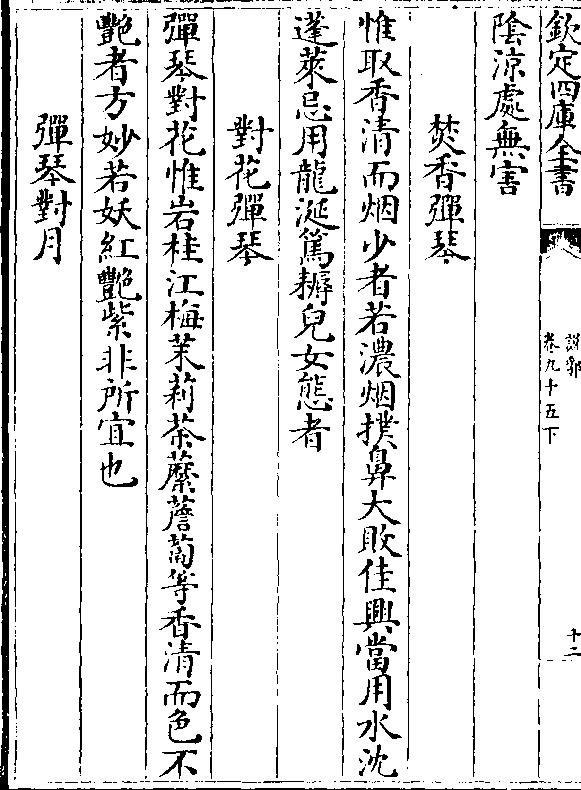 欽定四庫全書
說郛
卷九十五下
十二
陰涼處無害
焚香彈琴
惟取香清而烟少者若濃烟撲鼻大敗佳興當用水沈
蓬萊忌用龍涎篤耨兒女態者
對花彈琴
彈琴對花惟岩桂江梅茉莉荼蘼薝蔔等香清而色不
艷者方妙若妖紅艷紫非所宜也
彈琴對月